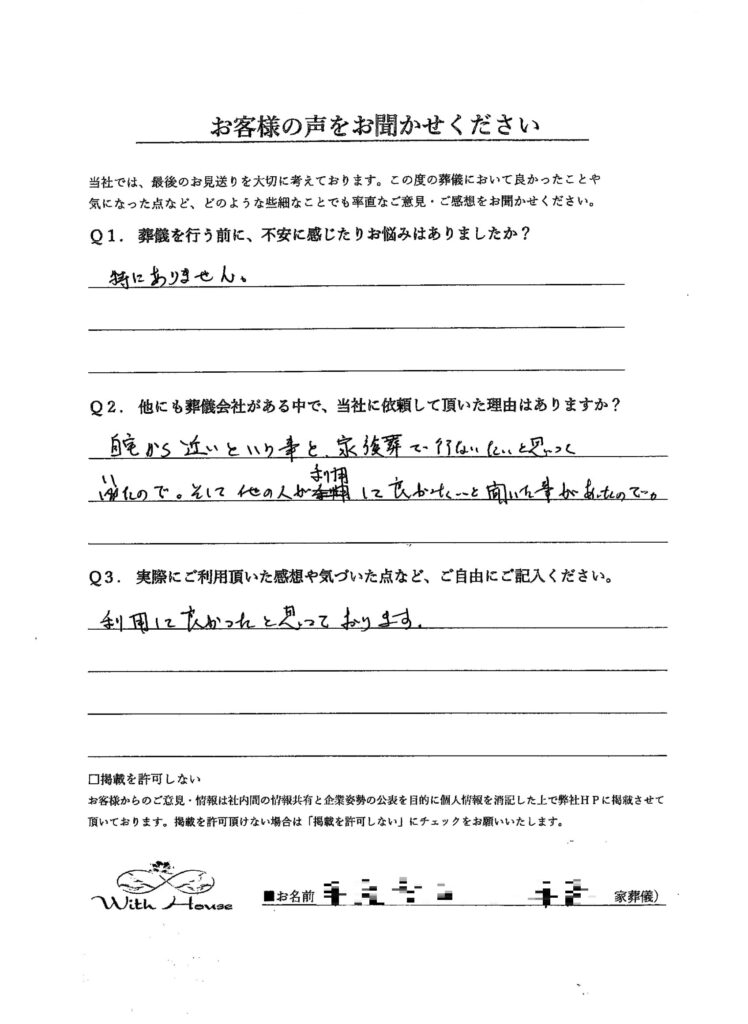 お客様の声をお聞かせください
当社では、最後のお見送りを大切に考えております。この度の葬儀において良かったことや
気になった点など、どのような些細なことでも率直なご意見・ご感想をお聞かせください。
Q１．葬儀を行う前に、不安に感じたりお悩みはありましたか？
特にありません。
Q２．他にも葬儀会社がある中で、当社に依頼して頂いた理由はありますか？
自宅から近いという事と、家族葬で行ないたいと思って
いたので。そして他の人が利用して良かったと聞いた事があったので。
Q３．実際にご利用頂いた感想や気づいた点など、ご自由にご記入ください。
利用して良かったと思っております。
□掲載を許可しない
お客様からのご意見・情報は社内間の情報共有と企業姿勢の公表を目的に個人情報を消記した上で弊社HPに掲載させて
頂いております。掲載を許可頂けない場合は「掲載を許可しない」にチェックをお願いいたします。
With House
■お名前 家葬儀）